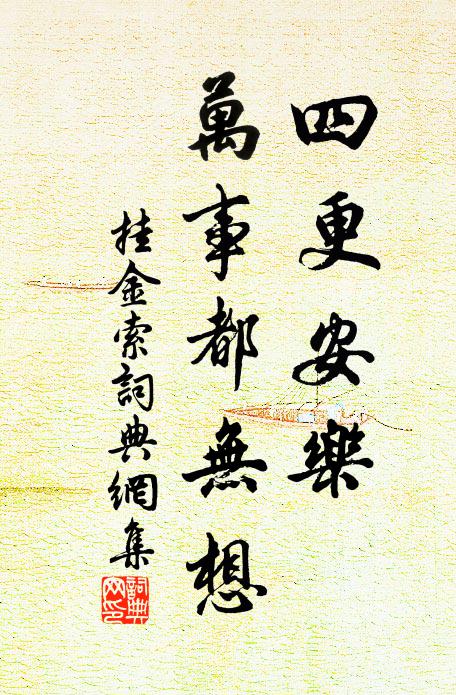 四更安樂
萬事都無想
挂金索詞典網集
詞典網印